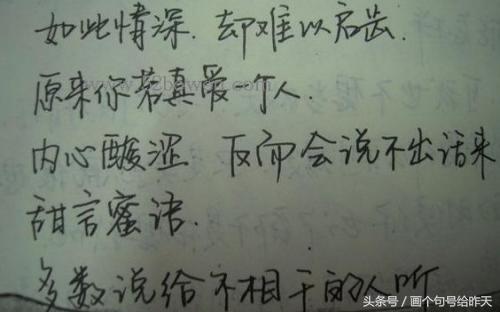 如此情深.却难以启齿.
原来你若真爱 个人.
内心酸涩 反而会说不出话来
甜言蜜语.
多数说给不相干的人听
头条号 / 画个句号给昨天